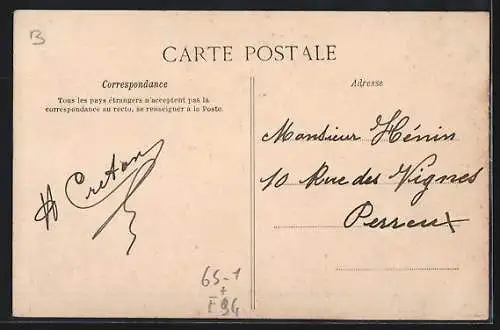 B
CARTE POSTALE
Correspondance
Tous les pays étrangers n'acceptent pas la
correspondance au recto, se renseigner à la Poste.
H Cretan
Adresse
Monsieur Hénin
10 Rue des Vignes
Perreux
65-1
+
F94